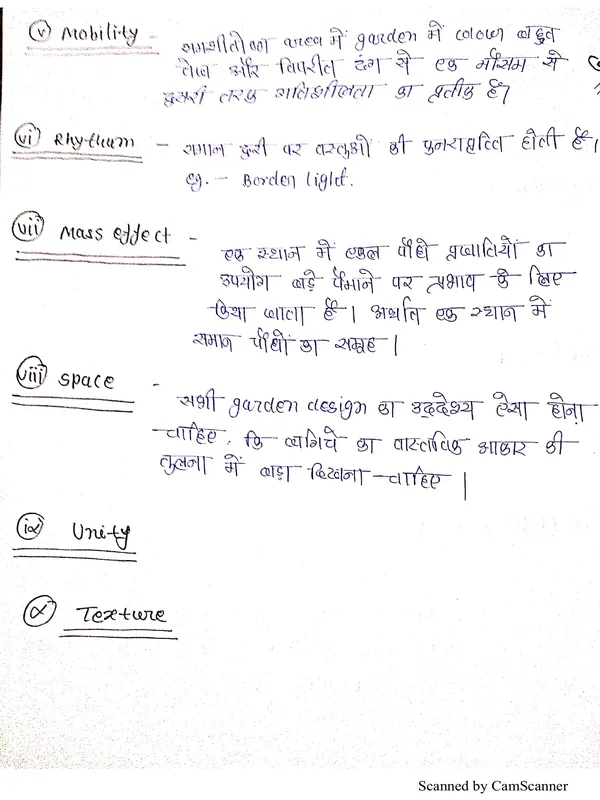 (v) Mobility - समशीतोष्ण में garden में colour बहुत
तेज और विपरीत ढंग से एक मौसम से
दुसरी तरफ गतिशीलता का प्रतीक है।
(vi) Rhythum - समान दुरी पर वस्तुओं की पुनरावृत्ति होती है।
eg. - Borden light.
(vii) Mass effect -
एक स्थान में एकल पौधे प्रजातियों का
उपयोग बड़े पैमाने पर प्रभाव के लिए
किया जाता है। अर्थात एक स्थान में
समान पौधों का समूह।
(viii) space -
सभी garden design का उद्देश्य ऐसा होना
चाहिए, कि बागिचे का वास्तविक आकार की
तुलना में बड़ा दिखना चाहिए।
(ix) Unity
(x) Texture
Scanned by CamScanner